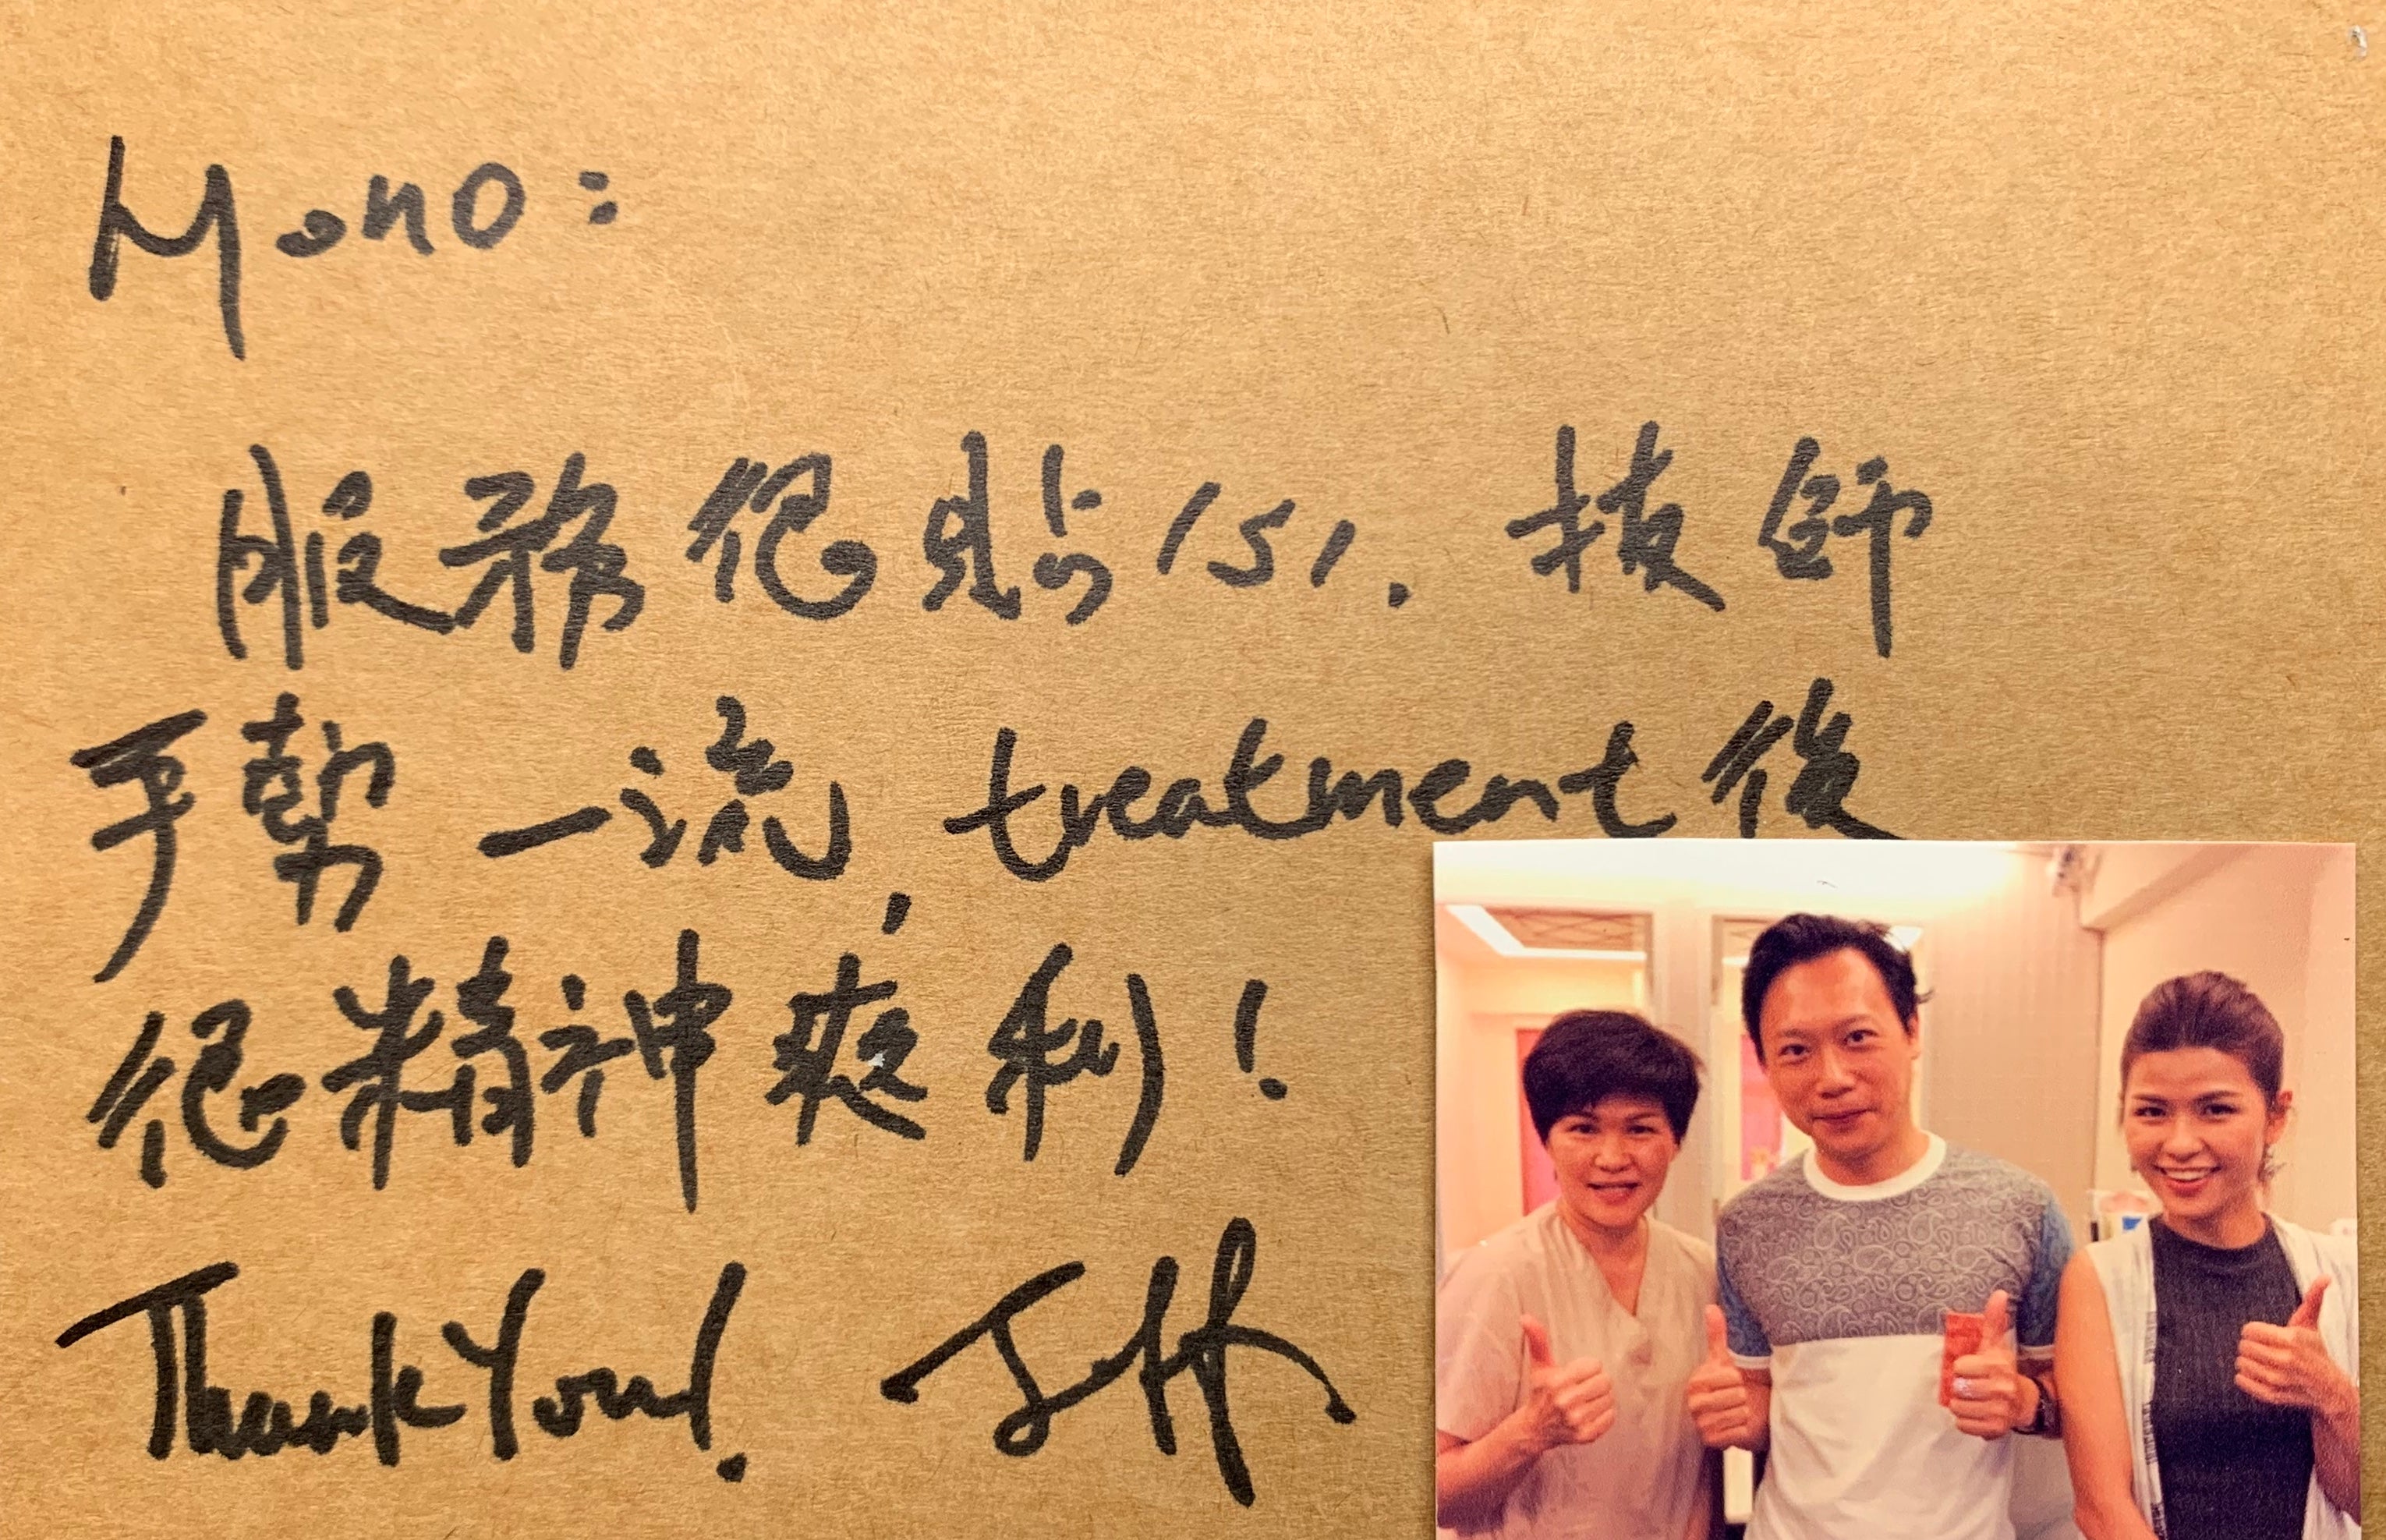 Mono:
服務很貼心. 技師
手勢一流, treatment後
很精神爽利!
Thank You! Jeff